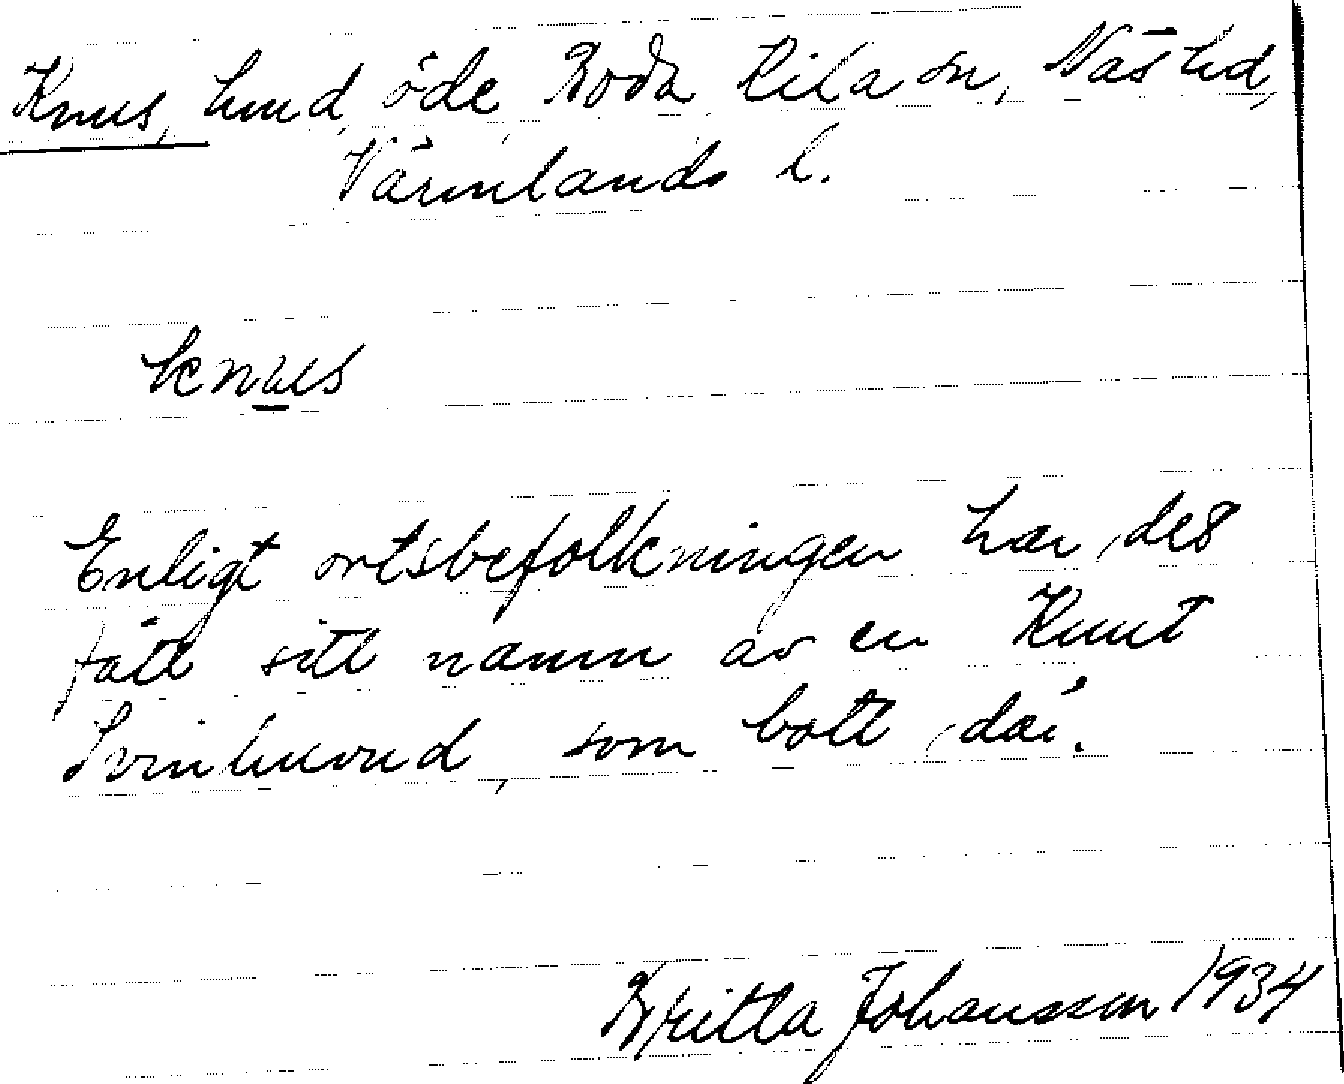 Knus, hmd, öde, Boda Kila sn, Näs hd,
Värmlands l.
knus
Enligt ortsbefolkningen har det
fått sitt namn av en Knut
Svinhuvud, som bott där.
Britta Johansson 1934